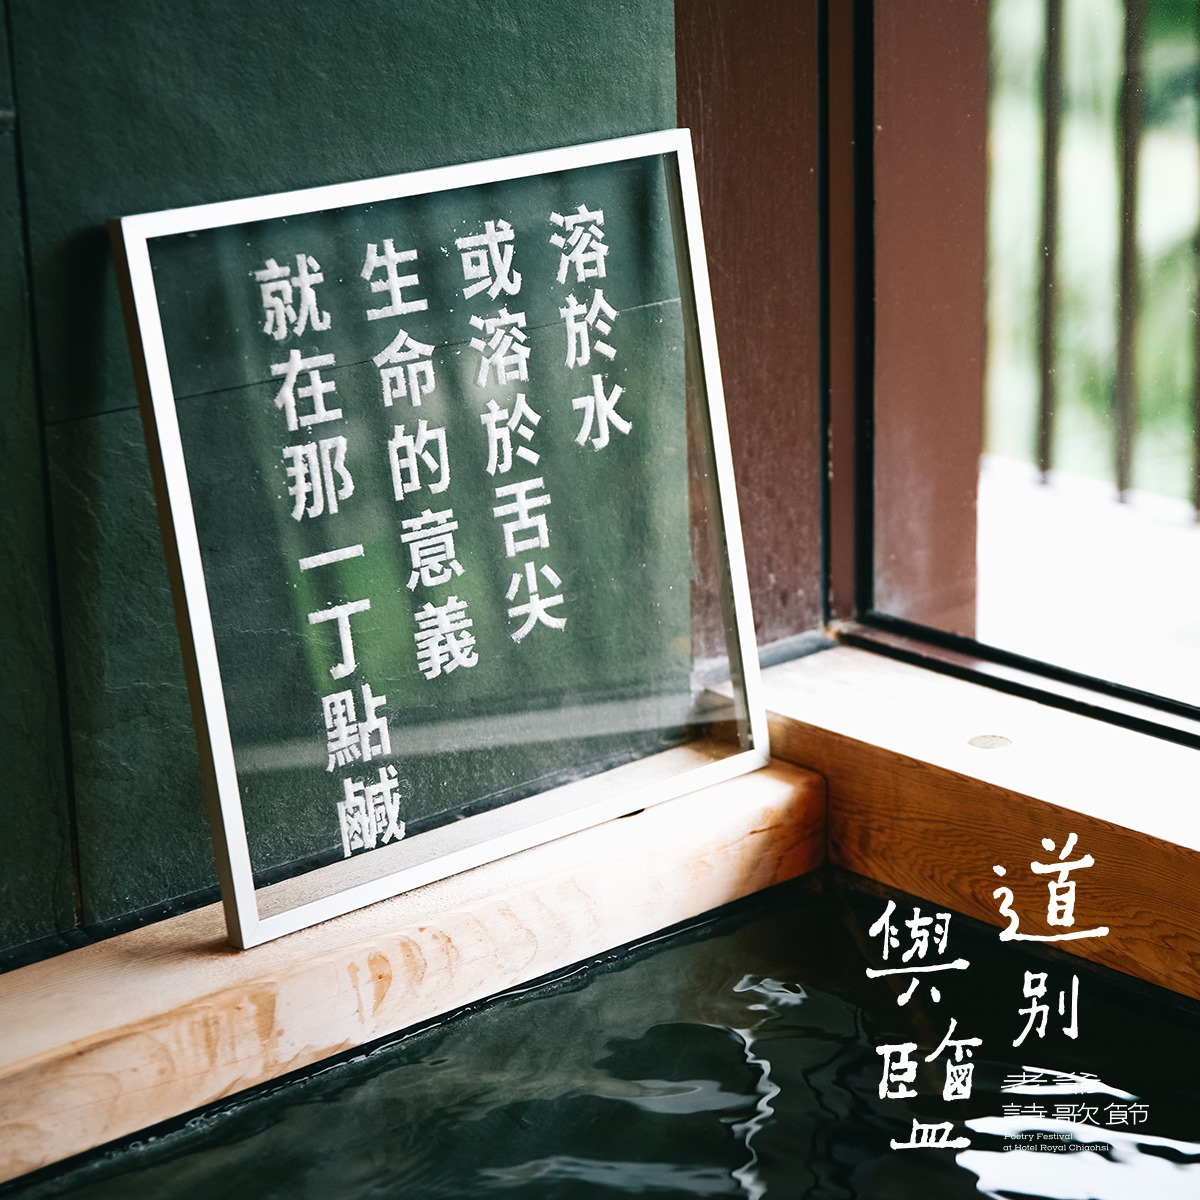 溶於水
或溶於舌尖
生命的意義
就在那一丁點鹹
道別
與鹽
老爺
詩歌節
Poetry Festival
at Hotel Royal Chiaohsi